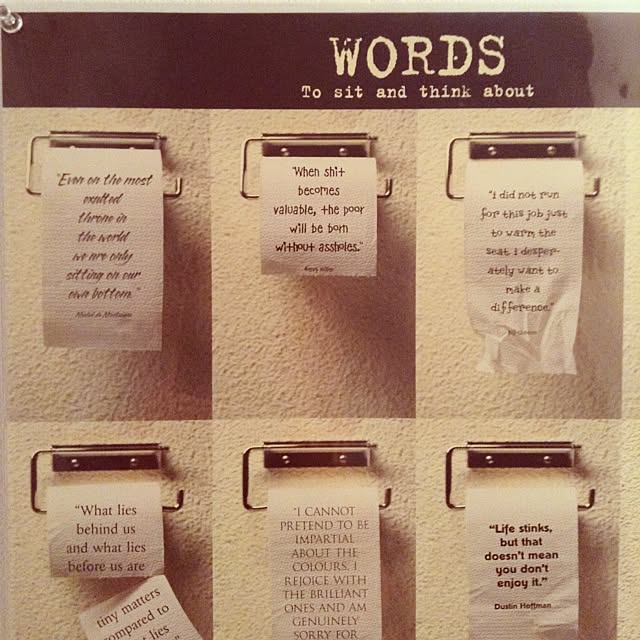 WORDS
To sit and think about
"Even on the most
exalted
throne in
the world
we are only
sitting on our
own bottom."
Michel de Montaigne
"When shit
becomes
valuable, the poor
will be born
without assholes."
Henry Miller
"I did not run
for this job just
to warm the
seat. I desper-
ately want to
make a
difference."
Bill Clinton
"What lies
behind us
and what lies
before us are
tiny matters
compared to
lies
"I CANNOT
PRETEND TO BE
IMPARTIAL
ABOUT THE
COLOURS. I
REJOICE WITH
THE BRILLIANT
ONES AND AM
GENUINELY
SORRY FOR
"Life stinks,
but that
doesn't mean
you don't
enjoy it."
Dustin Hoffman